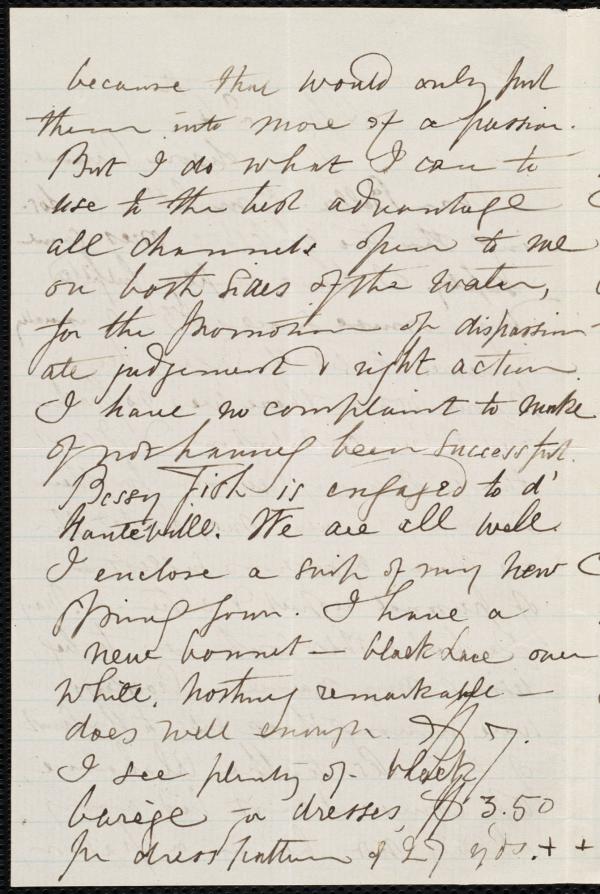 because that would only put
them into more of a passion.
But I do what I can to
use to the best advantage
all channels open to me
on both sides of the water,
for the promotion of dispassion-
ate judgement & right action.
I have no complaint to make
of not having been successful.
Bessy Fish is engaged to d'
Hauteville. We are all well.
I enclose a snip of my new
spring gown. I have a
new bonnet — black lace over
white. Nothing remarkable —
does well enough. $7.
I see plenty of black
barège for dresses, $3.50
pr dress pattern of 27 yds. + +